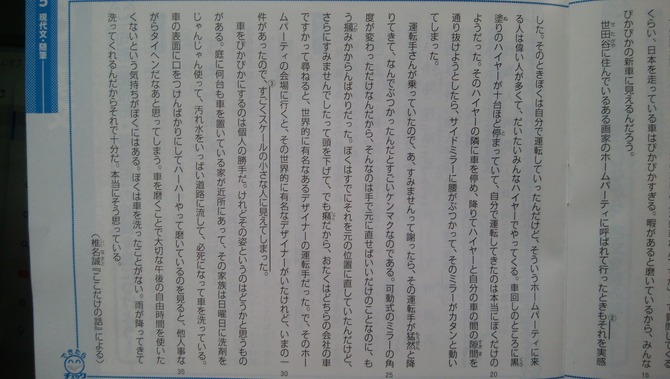 くらい、日本を走っている車はぴかぴかすぎる。暇があると磨いているから、みんな
ぴかぴかの新車に見えるんだろう。
世田谷に住んでいるある画家のホームパーティに呼ばれて行ったときもそれを実感
②
した。そのときぼくは自分で運転していったんだけど、そういうホームパーティに来
る人は偉い人が多くて、だいたいみんなハイヤーでやってくる。車回しのところに黒
塗りのハイヤーが十台ほど停まっていて、自分で運転してきたのは本当にぼくだけの
ようだった。そのハイヤーの隣に車を停め、降りてハイヤーと自分の車の間の隙間を
通り抜けようとしたら、サイドミラーに腰がぶつかって、そのミラーがカタンと動い
てしまった。
運転手さんが乗っていたので、あ、すみませんって謝ったら、その運転手が猛然と降
りてきて、なんでぶつかったんだとすごいケンマクなのである。可動式のミラーの角
度が変わっただけなんだから、そんなのは手で元に直せばいいだけのことなのに、も
う摑みかからんばかりだった。ぼくはすでにそれを元の位置に直していたんだけど、
さらにすみませんでしたって頭を下げて、でも癪だから、おたくはどちらの会社の車
ですかって尋ねると、世界的に有名なあるデザイナーの運転手だった。で、そのホー
ムパーティの会場に行くと、その世界的に有名なデザイナーがいたけれど、いまの一
件があったので、すごくスケールの小さな人に見えてしまった。
③
車をぴかぴかにするのは個人の勝手だ。けれどその姿というのはどうかと思うもの
がある。庭に何台も車を置いている家が近所にあって、その家族は日曜日に洗剤を
じゃんじゃん使って、汚れ水をいっぱい道路に流して、必死になって車を洗っている。
車の表面に口をつけんばかりにしてハーハーやって磨いているのを見ると、他人事な
がらタイヘンだなあと思ってしまう。車を磨くことで大切な午後の自由時間を使いた
くないという気持ちがぼくにはある。ぼくは車を洗ったことがない。雨が降ってきて
洗ってくれるんだからそれで十分だ。本当にそう思っている。
〈椎名誠『ここだけの話』による〉
15
20
25
30
35
5 現代文・随筆
できたら
チェック